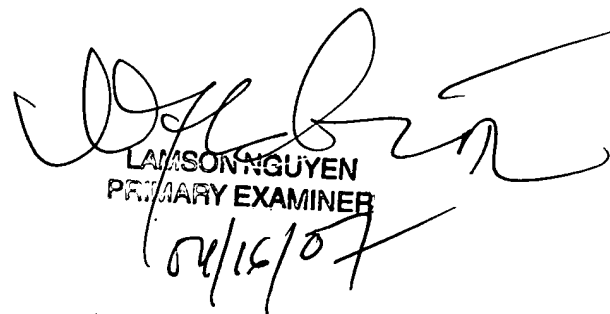 LAMSON NGUYEN
PRIMARY EXAMINER
04/16/07